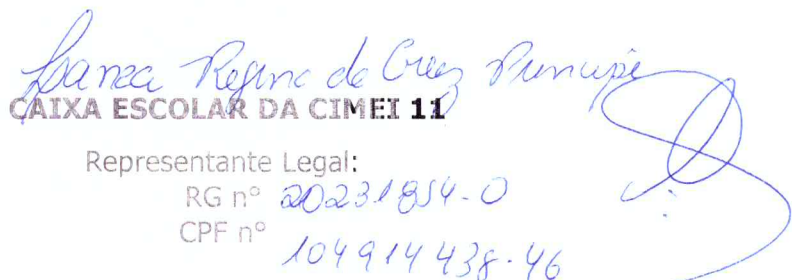 Regina da Cruz Principe
CAIXA ESCOLAR DA CIMEI 11
Representante Legal:
RG nº 20231854-0
CPF nº
104914438-46